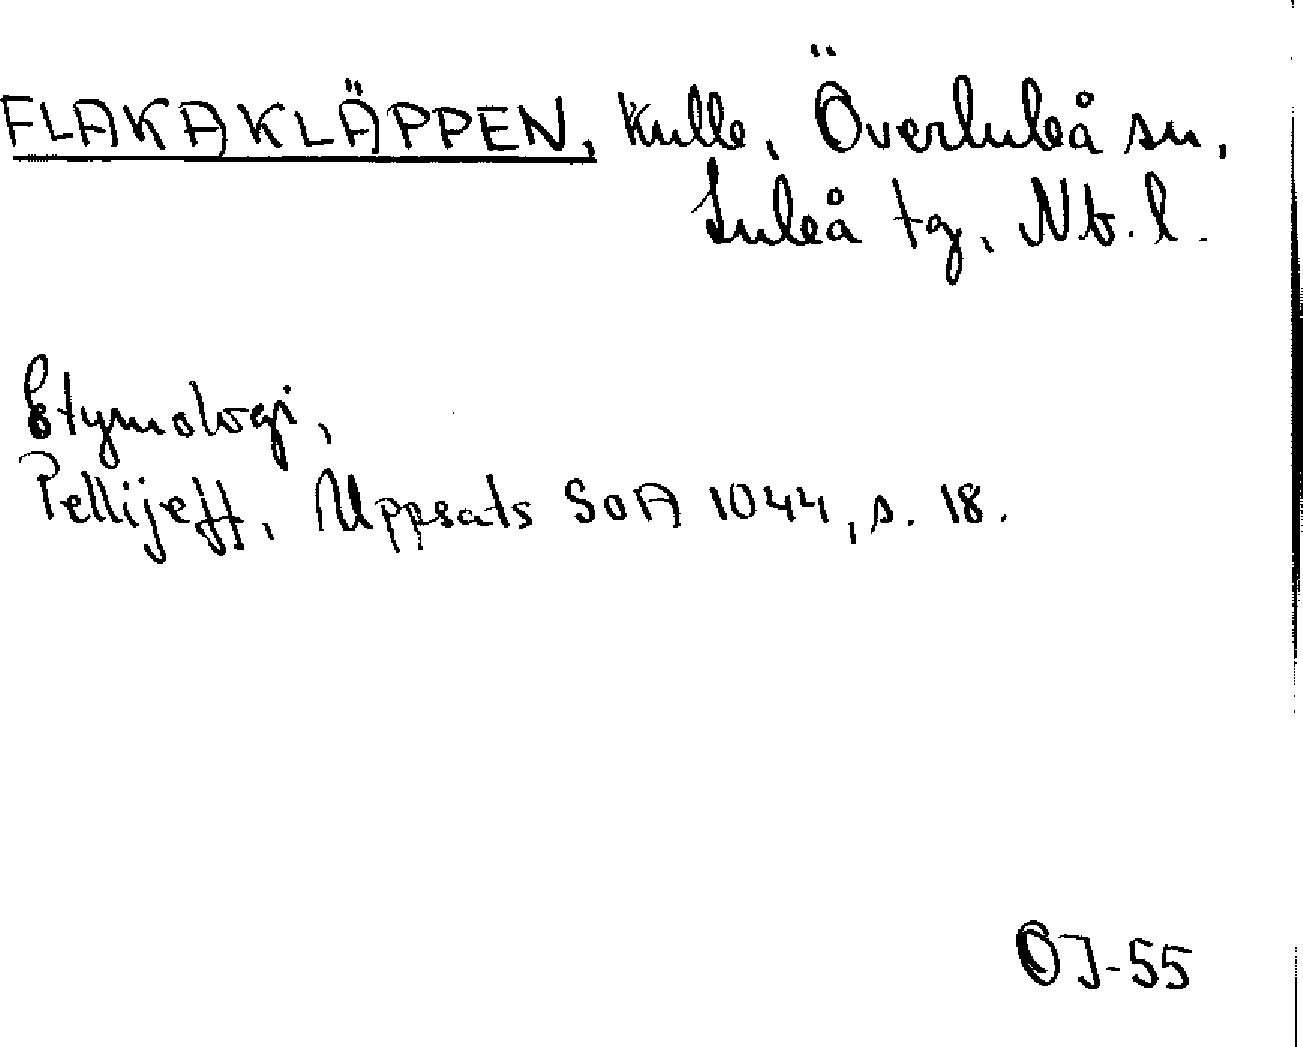 FLAKAKLÄPPEN, Kulle, Överluleå sn,
Luleå tg, Nb. l.
Etymologi,
Pellijeff, Uppsats SOA 1044, s. 18.
OJ-55